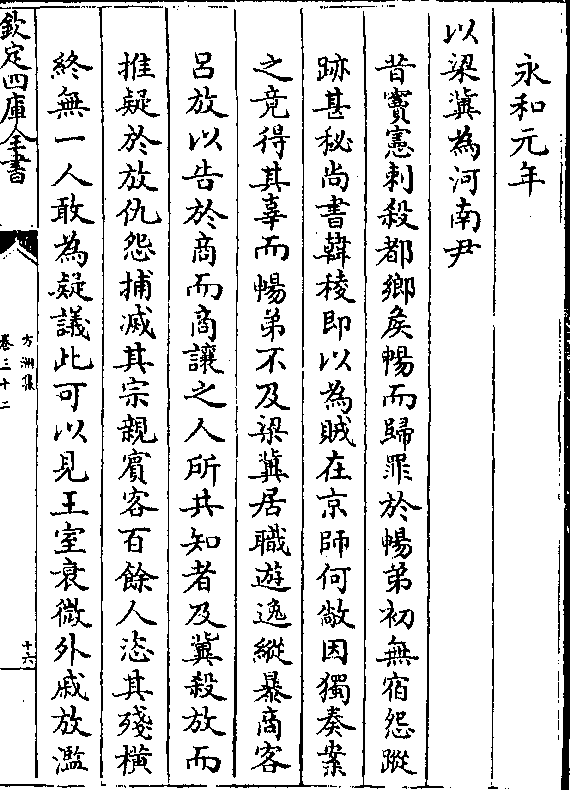 永和元年
以梁冀為河南尹
昔竇憲刺殺都鄉矦暢而歸罪於暢弟初無宿怨蹤
跡甚秘尚書韓稜即以為賊在京師何敞因獨奏案
之竟得其辜而暢弟不及梁冀居職遊逸縱暴商客
呂放以告於商而商讓之人所共知者及冀殺放而
推疑於放仇怨捕滅其宗親賓客百餘人恣其殘橫
終無一人敢為疑議此可以見王室衰微外戚放濫
欽定四庫全書
方洲集
卷三十二
十六